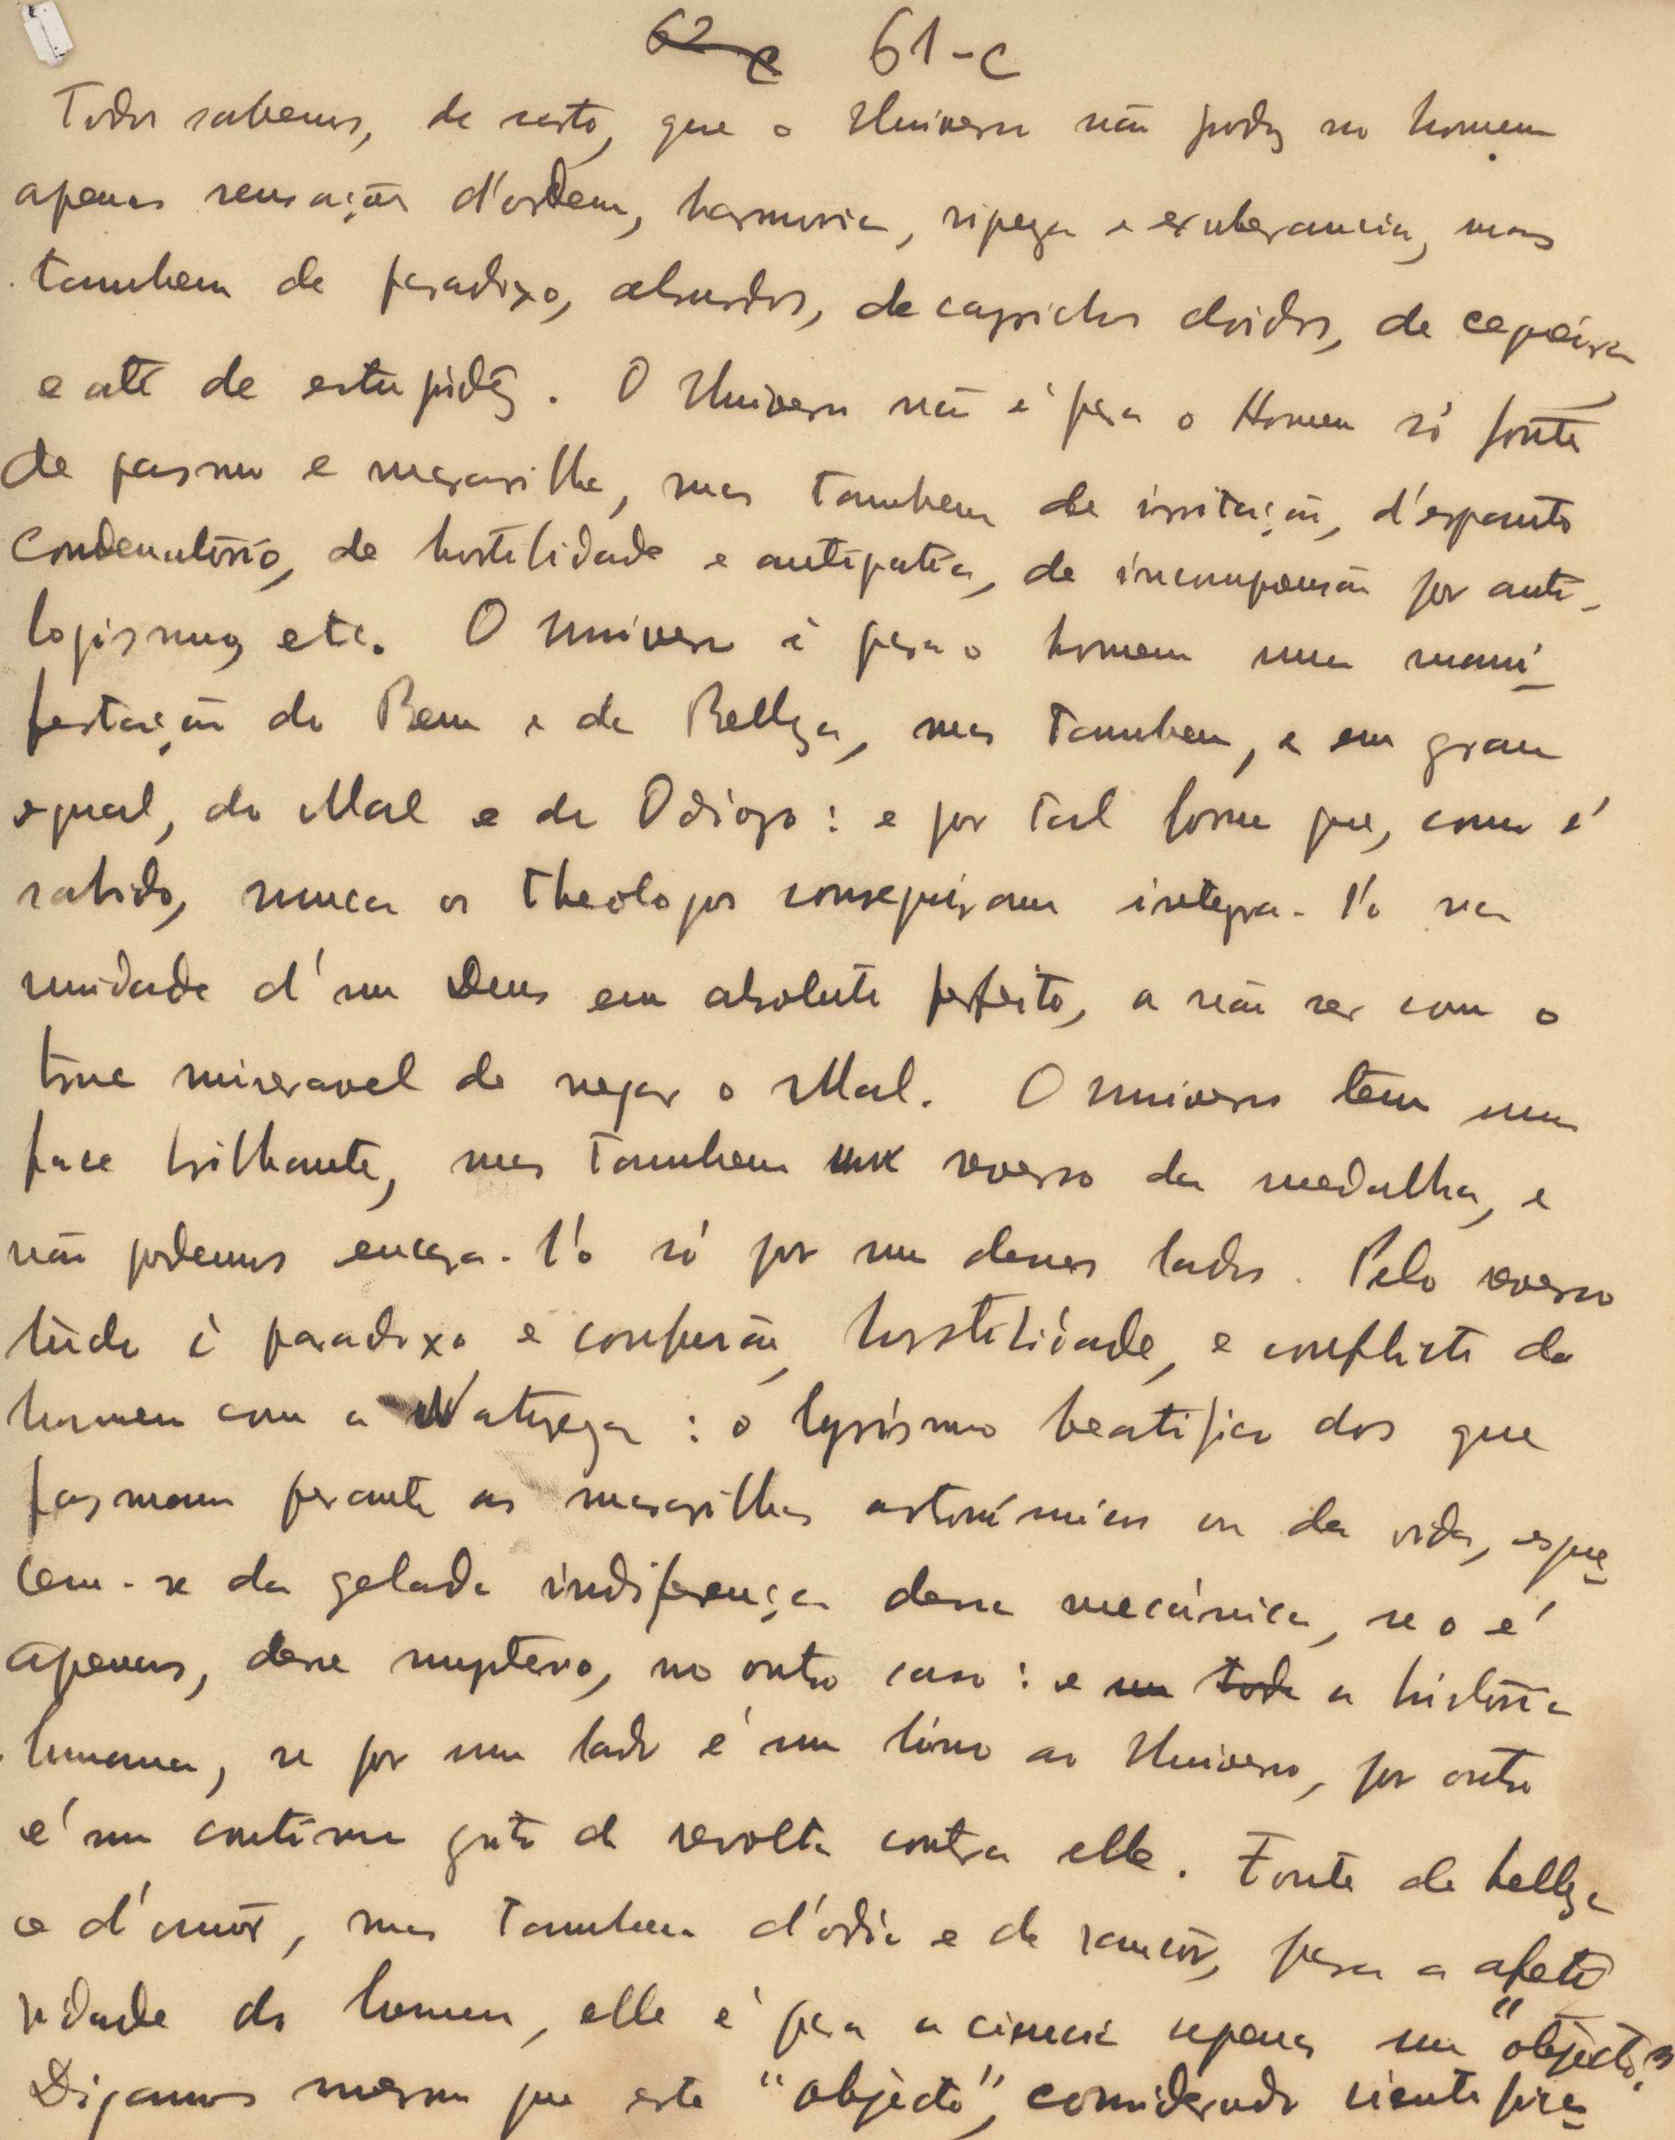 62-c 61-c
Todos sabemos, de resto, que o Universo não produz no homem
apenas sensações d'ordem, harmonia, riqueza e exuberancia, mas
tambem de paradoxo, absurdos, de caprichos doidos, de cegueira
e até de estupidêz. O Universo não é para o Homem só fonte
de pasmo e maravilha, mas tambem de irritação, d'espanto
condenatório, de hostilidade e antipatia, de incompreensão por anti-
logismos, etc. O universo é para o homem uma mani-
festação do Bem e da Belleza, mas tambem, e em grau
egual, do Mal e do Odioso: e por tal forma que, como é
sabido, nunca os theologos conseguiram integra-l'o na
unidade d'um Deus em absoluto perfeito, a não ser com o
truc miseravel de negar o Mal. O universo tem uma
face brilhante, mas tambem um reverso da medalha, e
não podemos encara-l'o só por um desses lados. Pelo reverso
tudo é paradoxo e confusão, hostilidade, e conflicto do
homem com a Natureza: o lyrismo beatifico dos que
pasmam perante as maravilhas astronómicas ou da vida, esque-
cem-se da gelada indiferença dessa mecánica, se o é
apenas, desse mysterio, no outro caso: e um toda a história
humana, se por um lado é um hino ao Universo, por outro
é um continuo grito de revolta contra elle. Fonte de belleza
e d'amôr, mas tambem d'odio e de rancôr, para a afecti
vidade do homem, elle é para a ciencia apenas um "objecto."
Digamos mesmo que este "objecto", considerado cientifica-